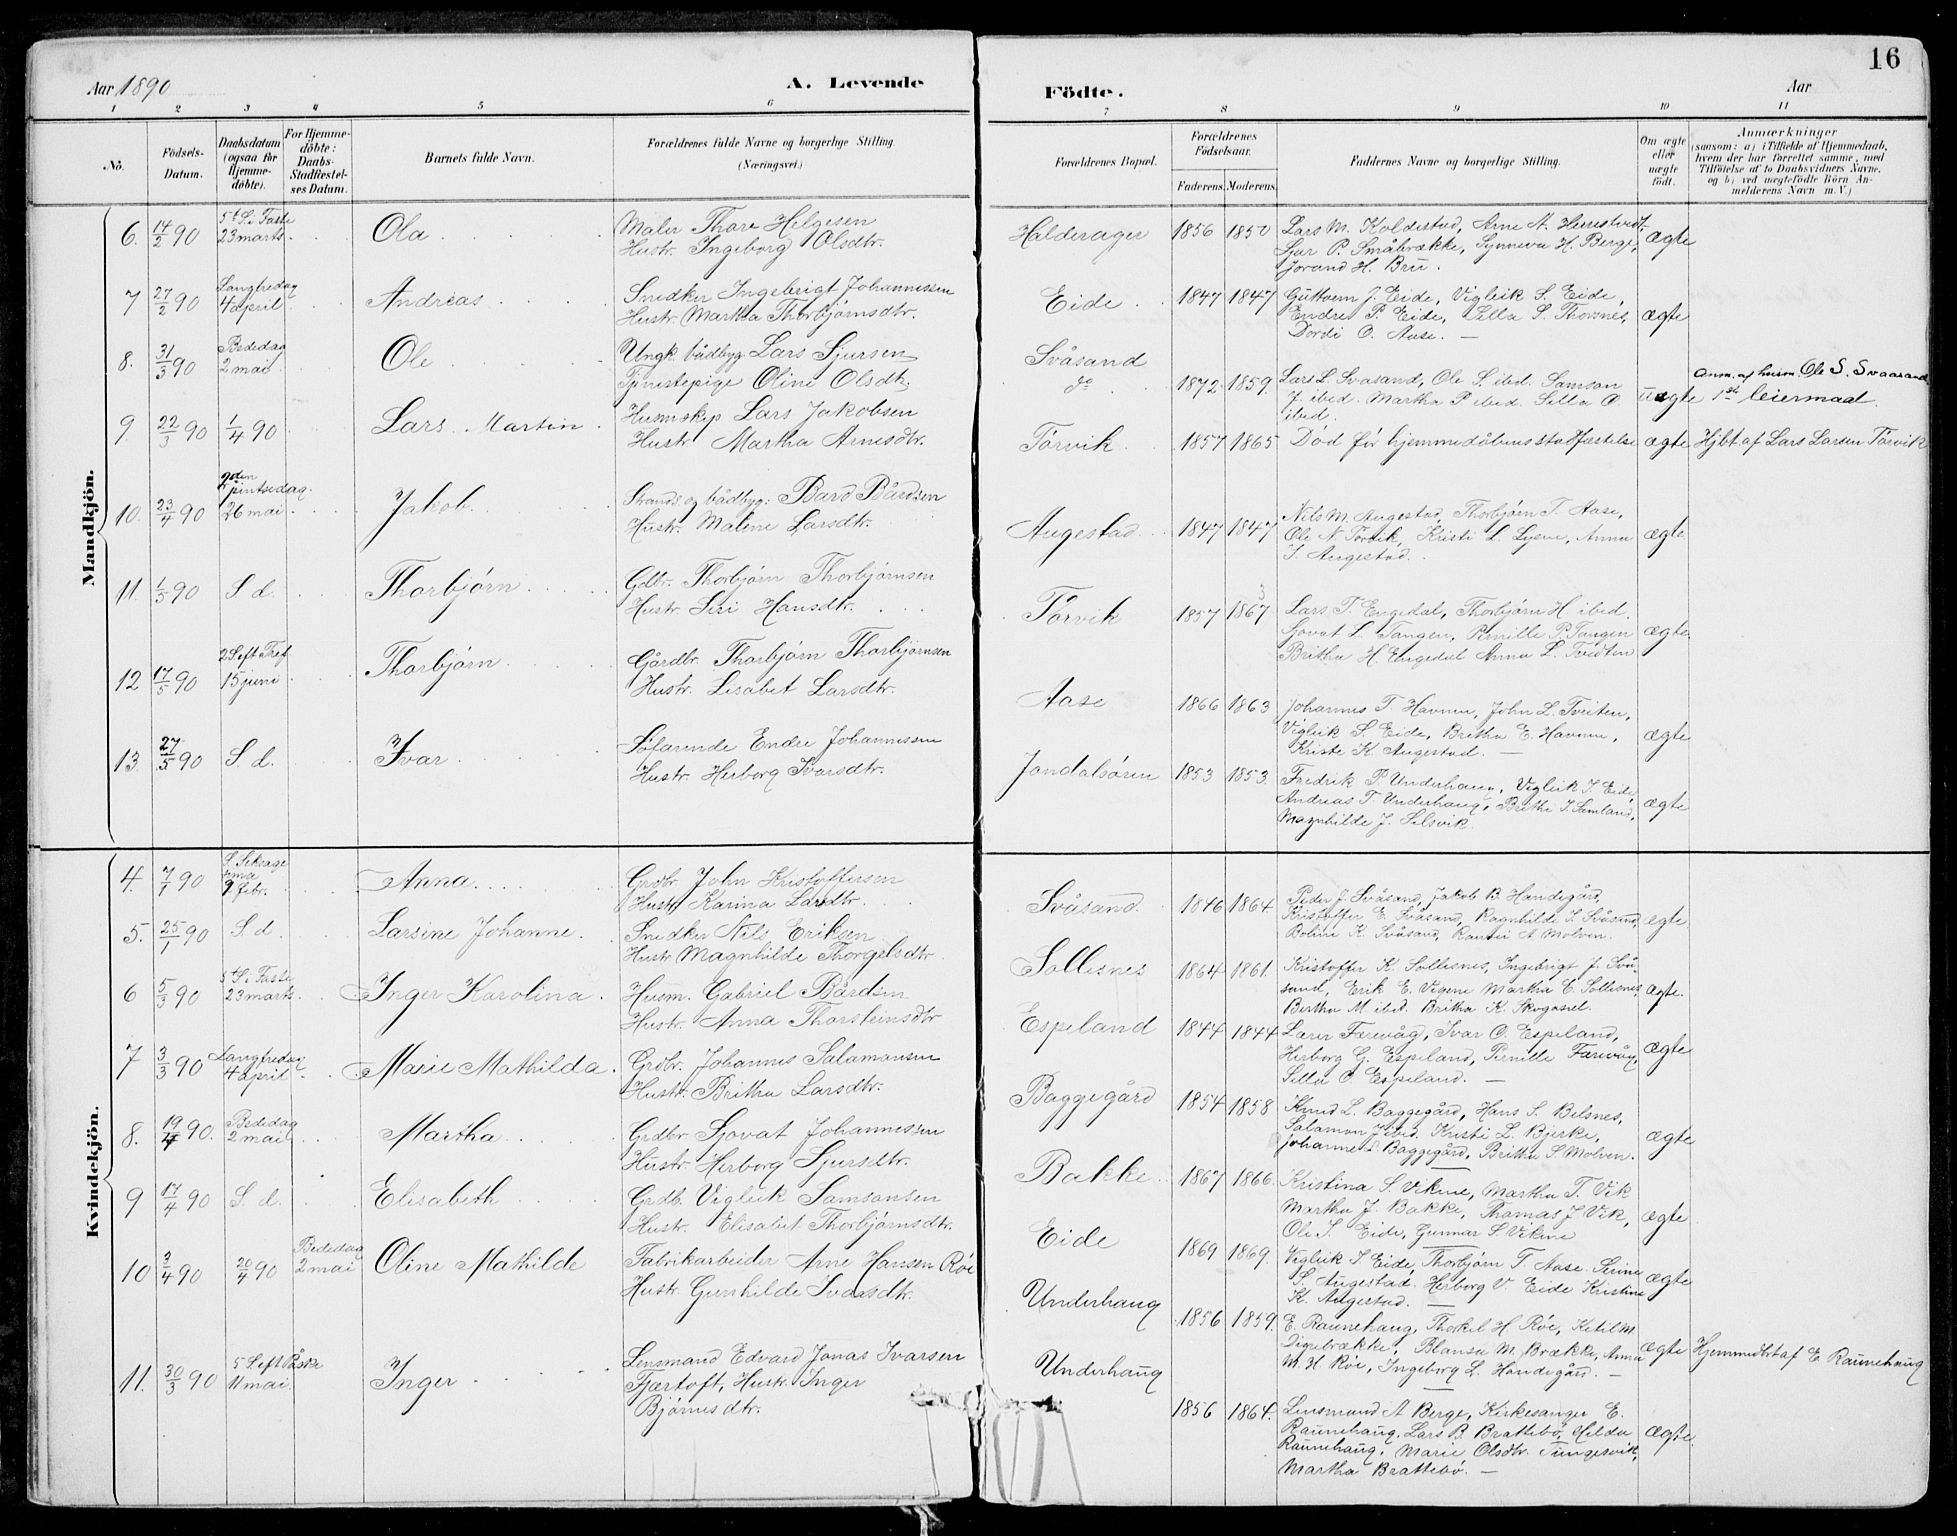 16
Aar 1890
A. Levende
Födte.
Aar
1 2 3 4 5 6 7 8 9 10 11
No.
Födsels-Datum.
Daabsdatum (ogsaa for Hjemme-döbte).
For Hjemme-döbte: Daabs-Stadfæstel-ses Datum.
Barnets fulde Navn.
Forældrenes fulde Navne og borgerlige Stilling. (Næringsvei.)
Forældrenes Bopæl.
Forældrenes Födselsaar.
Faderens. Moderens.
Faddernes Navne og borgerlige Stilling.
Om ægte eller uægte födt.
Anmærkninger
(saasom: a) i Tilfælde af Hjemmedaab, hvem der har forrettet samme, med Tilföielse af to Daabsvidners Navne, og b) ved uægtefödte Börn An-melderens Navn m. V.)
Mandkjön.
6. 14/2 90 5te S i Faste 23 marts. Ola Maler Thore Helgesen
Hustr. Ingeborg Olsdtr.
Halderager 1856 1850 Lars M. Koldestad, Arne A. Herrestvedt,
Sjur P. Småbrække, Synneva H. Berge,
Jorand H. Bru. ægte
7 27/2 90 Langfredag 4 april Andreas Snedker Ingebrigt Johannessen
Hustr. Martha Thorbjørnsdtr.
Eide 1847 1847 Guttorm J. Eide, Vigleik S. Eide,
Endre P. Eide, Silla S. Thovnes,
Dordi O. Aase. ægte
8. 31/3 90 Bededag 2 mai Ole Ungk. bådbyg. Lars Sjursen
Tjenestepige Oline Olsdtr.
Svåsand
do
1872 1859. Lars L. Svåsand, Ole S. ibid. Samson
J. ibid. Martha P. ibid. Silla O.
ibid. uægte Anm. af husm. Ole S. Svaasand
1ste leiermaal.
9 22/3 90 1/4 90 Lars Martin Husmskp Lars Jakobsen
Hustr Martha Arnesdtr.
Tørvik 1857 1865 Død før hjemmedåbens stadfæstelse ægte Hjbt af Lars Larsen Tørvik
10. 23/4 90 2den pintsedag 26 mai Jakob Strands. og bådbyg. Bård Bårdsen
Hustr. Malene Larsdtr.
Augestad 1847 1847 Nils M. Augestad, Thorbjørn T. Aase,
Ole N. Tørvik, Kristi L. Lysen, Anna
I. Augestad. ægte
11. 1/5 90 S. d. Thorbjørn Gdbr. Thorbjørn Thorbjørnsen
Hustr Siri Hansdtr.
Tørvik 1857 1867 Lars T. Engedal, Thorbjørn H. ibid.
Sjovat L. Tangen, Pernille P. Tangen
Britha H. Engedal Anna L. Tvedten ægte
12 17/5 90 2 S eft Tref 15 juni Thorbjørn Gårdbr. Thorbjørn Thorbjørnsen
Hustr. Lisabet Larsdtr.
Aase 1866 1863 Johannes T. Havnen, John L. Tveiten,
Vigleik S. Eide, Britha E. Havnen,
Kriste K. Augestad. ægte
13 27/5 90 S. d. Ivar Søfarende Endre Johannessen
Hustr. Herborg Ivarsdtr.
Jondalsøren 1853 1853. Fredrik P. Underhaug, Vigleik I. Eide,
Andreas T. Underhaug, Brithe I. Samland,
Magnhilde J. Selsvik. ægte
Kvindekjön.
4. 7/1 90 S. Seksagesima 9 febr. Anna Grdbr. John Kristoffersen
Hustr. Karina Larsdtr.
Svåsand 1846 1864. Peder J. Svåsand, Jakob B. Handegård,
Kristoffer E. Svåsand, Ragnhilde S. Svåsand,
Boline K. Svåsand, Ranvei A. Molven. ægte
5. 25/1 90 S. d. Larsine Johanne Snedker Nils Eriksen
Hustr. Magnhilde Thorgelsdtr.
Sollesnes 1864 1861. Kristoffer K. Sollesnes, Ingebrigt J. Svå-
sand, Erik E. Vigene Martha E. Sollesnes,
Bertha M. ibid. Britha K. Skogasel. ægte.
6 5/3 90 5te S i Faste 23 marts Inger Karolina Husm. Gabriel Bårdsen
Hustr. Anna Thorsteinsdtr
Espeland 1844 1844 Laren Farevåg, Ivar O. Espeland,
Herborg G. Espeland, Pernille Farevåg,
Silla O. Espeland. ægte
7 3/3 90 Langfredag 4 april Marie Mathilda Grdbr. Johannes Salamonsen
Hustr. Britha Larsdtr.
Baggegård 1854 1858 Knud L. Baggegård, Hans S. Belsnes,
Salamon J. ibid. Kristi L. Bjerke,
Johanne S. Baggegård, Britha S. Molven. ægte
8. 19/4 90. Bededag 2 mai Martha Grdbr. Sjovat Johannessen
Hustr Herborg Sjursdtr.
Bakke 1867 1866. Kristina S. Vikene, Martha T. Vik
Martha J. Bakke, Thomas J. Vik,
Ole S. Eide, Gunnar S. Vikene ægte
9 17/4 90 S. d. Elisabeth Grdb. Vigleik Samsonsen
Hustr. Elisabet Thorbjørnsdtr.
Eide 1869 1869. Vigleik I. Eide, Thorbjørn T. Aase. Serine
S. Augestad. Herborg V. Eide Kristine
K. Augestad. ægte
10 3/4 90 20/4 90 Bededag 2 mai Oline Mathilde Fabrikarbeider Arne Hansen Røe
Hustr. Gunhilde Ivarsdtr.
Underhaug 1856 1859. E. Raunehaug, Thorkel H. Røe, Ketil M.
Digebrække, Blansa M. Brække, Anna
M. H. Røe, Ingeborg L. Handegård. ægte Hjemmedøbt af E. Raunehaug
11. 30/3 90 5 S eft Påske 11 mai Inger Lensmand Edvard Jonas Ivarsen
Fjærtoft, Hustr. Inger
Bjørnesdtr.
Underhaug 1856 1864. Lensmand A Berge, Kirkesanger E.
Raunehaug, Lars B. Brattebø, Hilda
Raunehaug, Marie Olsdtr. Tungesvik,
Martha Brattebø. ægte